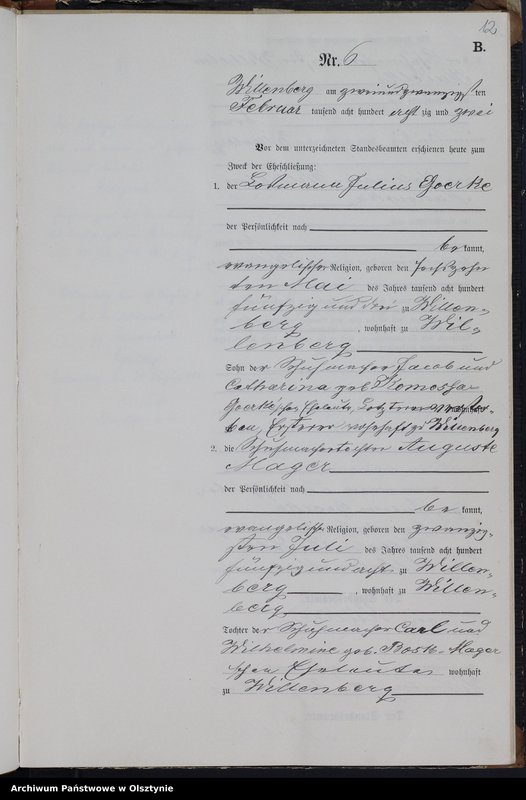 12
B.
Nr. 6
Willenberg am zweiundzwanzigsten
Februar tausend acht hundert achtzig und zwei
Vor dem unterzeichneten Standesbeamten erschienen heute zum
Zweck der Eheschließung:
1. der Lotmann Julius Goerke
der Persönlichkeit nach
be kannt,
evangelischer Religion, geboren den sechszehn
ten Mai des Jahres tausend acht hundert
fünfzig und drei zu Willen-
berg, wohnhaft zu Wil-
lenberg
Sohn der Schuhmacher Jacob und
Catharina geb.
Goerke'schen Eheleute, Letztere verstor-
ben, Ersterer wohnhaft zu Willenberg
2. die Schuhmachertochter Auguste
Mager
der Persönlichkeit nach
be kannt,
evangelischer Religion, geboren den zwanzig-
sten Juli des Jahres tausend acht hundert
fünfzig und acht zu Willen-
berg, wohnhaft zu Willen-
berg
Tochter der Schuhmacher Carl und
Wilhelmine geb. Mager
schen Eheleute wohnhaft
zu Willenberg
Archiwum Państwowe w Olsztynie